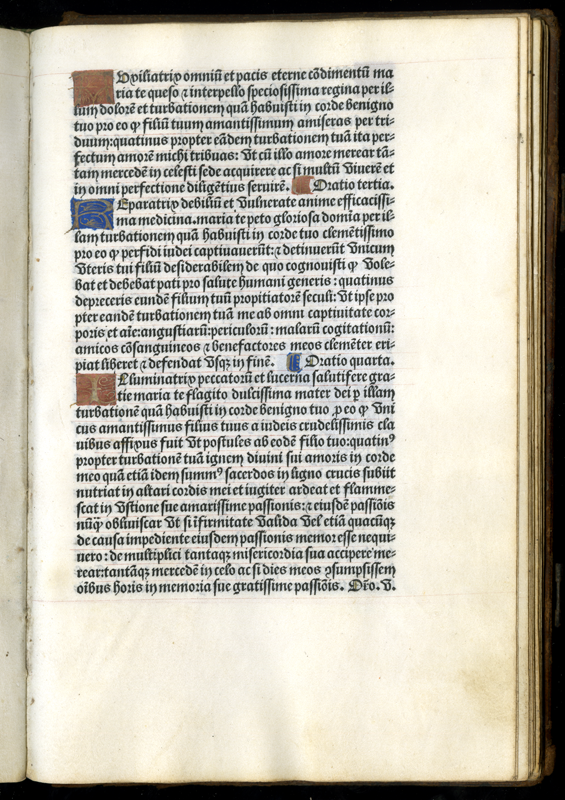 Auxiliatrix omniũ et pacis eterne cõdimentũ ma
ria te queso ⁊ interpello speciosissima regina per il-
lum dolorẽ et turbationem quã habuisti in corde benigno
tuo pro eo ꝙ filiũ tuum amantissimum amiseras per tri-
duum: quatinus propter eãdem turbationem tuã ita per-
fectum amorẽ michi tribuas: Vt cũ illo amore merear tã-
tam mercedẽ in celesti sede acquirere ac si multũ Viuerẽ et
in omni perfectione diligẽtius seruirẽ. Oratio tertia.
Reparatrix debiliũ et Vulnerate anime efficacissi-
ma medicina. maria te peto gloriosa domĩa per il-
lam turbationem quã habuisti in corde tuo clemẽtissimo
pro eo ꝙ perfidi iudei captiuauerũt: ⁊ detinuerũt Vnicum
Vteris tui filiũ desiderabilem de quo cognouisti ꝙ Vole-
bat et debebat pati pro salute humani generis: quatinus
depreceris eundẽ filium tuũ propitiatorẽ seculi: Vt ipse pro
pter eandẽ turbationem tuã me ab omni captiuitate cor-
poris et aĩe: angustiarũ: periculorũ: malarũ cogitationũ:
amicos cõsanguineos ⁊ benefactores meos clemẽter eri-
piat liberet ⁊ defendat Vsqꝫ in finẽ. Oratio quarta.
Illuminatrix peccatorũ et lucerna salutifere gra-
tie maria te flagito dulcissima mater dei ꝑ illam
turbationẽ quã habuisti in corde benigno tuo ꝓ eo ꝙ Vni
cus amantissimus filius tuus a iudeis crudelissimis cla
uibus affixus fuit Vt postules ab eodẽ filio tuo: quatinꝰ
propter turbationẽ tuã ignem diuini sui amoris in corde
meo quã etiã idem summꝰ sacerdos in ligno crucis subiit
nutriat in altari cordis mei et iugiter ardeat et flamme-
scat in Vstione sue amarissime passionis: ⁊ eiusdẽ passiõis
nũꝙ̃ obliuiscar Vt si ĩfirmitate Valida Vel etiã quacũqꝫ
de causa impediente eiusdem passionis memor esse nequi-
uero: de multiplici tantaqꝫ misericordia sua accipere me-
rear: tantãqꝫ mercedẽ in celo ac si dies meos ꝯsumpsissem
oĩbus horis in memoria sue gratissime passiõis. Oro. V.